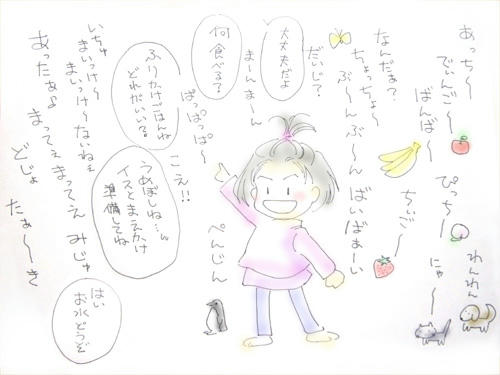 あっち〜
でぃんご〜
ばんば〜
ぴっち〜
わんわん
にゃ〜
ちぃご〜
なんだぁ?
ちょっちょ〜
ぶ〜んぶ〜ん
ばいばぁーい
だいじ?
大丈夫だよ
まーんまーん
何食べる?
ぱっぱっぱ〜
ふりかけごはんね
どれがいい?
こえ!!
うめぼしね…
イスとまえかけ
準備してね
ぺんじん
いちゅ
まいっけ〜
まいっけ〜ないねぇ
あったぁよ
まってぇまってえ
みじゅ
はい
お水どうぞ
どじょ
たぁ〜き